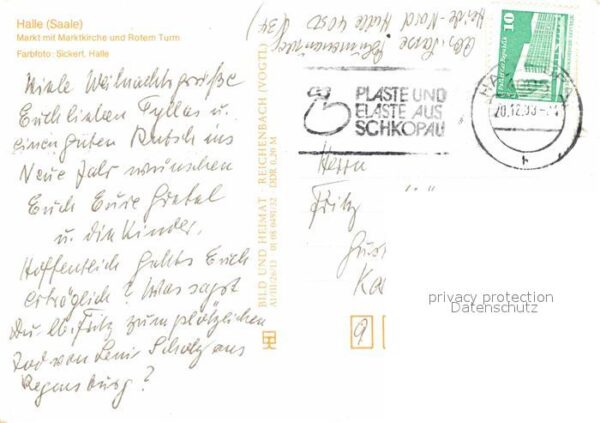 Halle (Saale)
Markt mit Marktkirche und Rotem Turm
Farbfoto: Sickert, Halle
Viele Weihnachtsgrüße
Euch lieben Tyllas u.
einen guten Rutsch ins
Neue Jahr wünschen
Euch Eure Gretel
u. die Kinder.
Hoffentlich gehts Euch
erträglich? Was sagst
Du lb. Fritz zum plötzlichen
Tod von Leni Scholz aus
Regensburg?
BILD UND HEIMAT REICHENBACH (VOGTL)
A1/III/26/13 01 08 0491/32 DDR 0,20 M
Halle 4050
Heide-Nord
PLASTE UND
ELASTE AUS
SCHKOPAU
10
Herrn
Fritz
privacy protection
Datenschutz